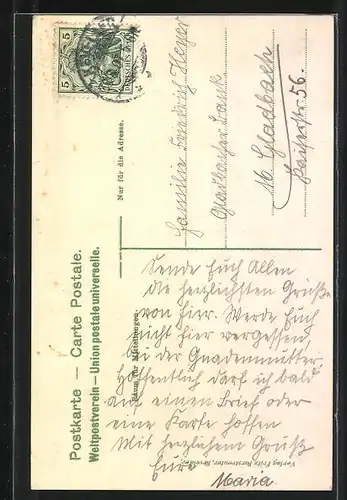 Postkarte — Carte Postale.
Weltpostverein — Union postale universelle.
Nur für die Adresse.
Raum für Mitteilungen.
5 5
DEUTSCHES
Familie Friedrich Heyer
Gladbacher Bank
M. Gladbach
Kaiserstr. 56.
Sende Euch Allen
die herzlichsten Grüße
von hier. Werde Euch
nicht hier vergessen
bei der Gnadenmutter.
Hoffentlich darf ich bald
auf einen Brief oder
eine Karte hoffen
Mit herzlichem Gruß
Eure
Maria
Verlag Fritz